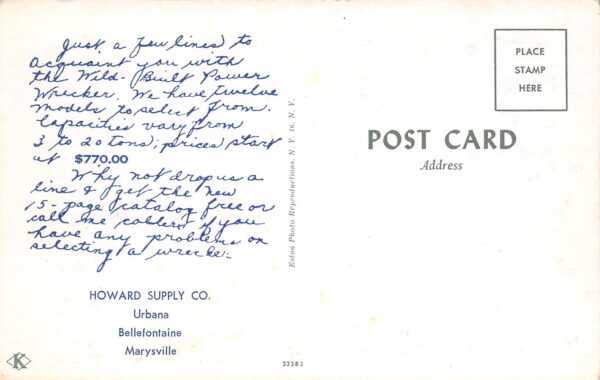 Just a few lines to
acquaint you with
the Wild-Built Power
Wrecker. We have twelve
models to select from.
Capacities vary from
3 to 20 tons; prices start
at $770.00
Why not drop us a
line & get the new
15-page catalog free or
call me collect if you
have any problems on
selecting a wrecker.
HOWARD SUPPLY CO.
Urbana
Bellefontaine
Marysville
K
Exton Photo Reproductions, N. Y. 16, N. Y.
23383
PLACE
STAMP
HERE
POST CARD
Address